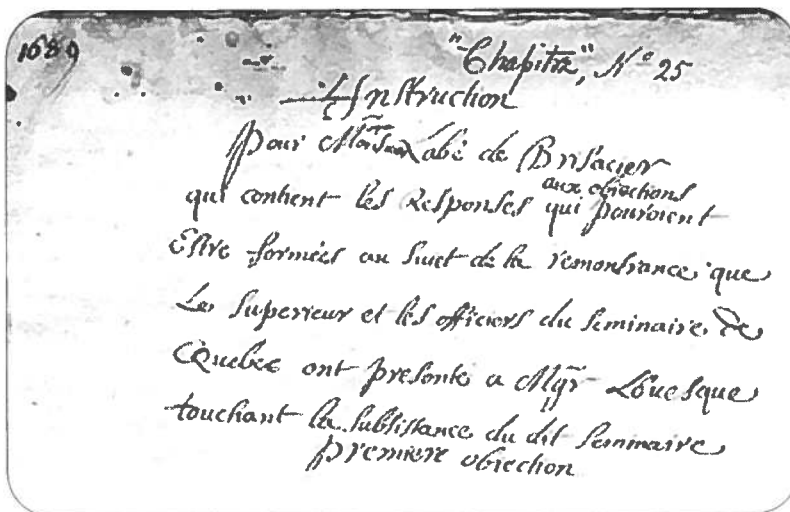 1689
"Chapitre", N° 25
Instruction
pour Monsieur Labé de Brisacier
aux obiections
qui contient les Responses qui pouroient
Estre formées au suiet de la remonstrance que
Le superieur et les officiers du seminaire de
Quebec ont presenté a Mgr LEuesque
touchant la subsistance du dit seminaire
premiere obiection